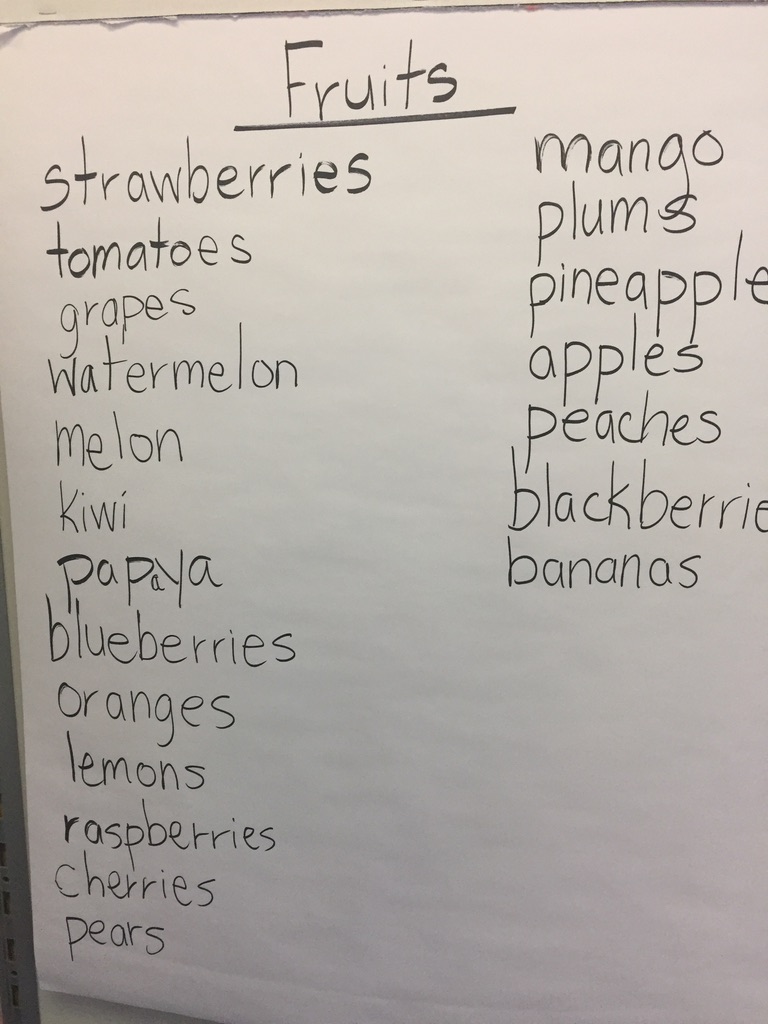 Fruits
strawberries
tomatoes
grapes
watermelon
melon
kiwi
papaya
blueberries
oranges
lemons
raspberries
cherries
pears
mango
plums
pineapple
apples
peaches
blackberrie
bananas